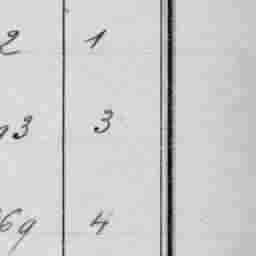 2 1
93 3
69 4